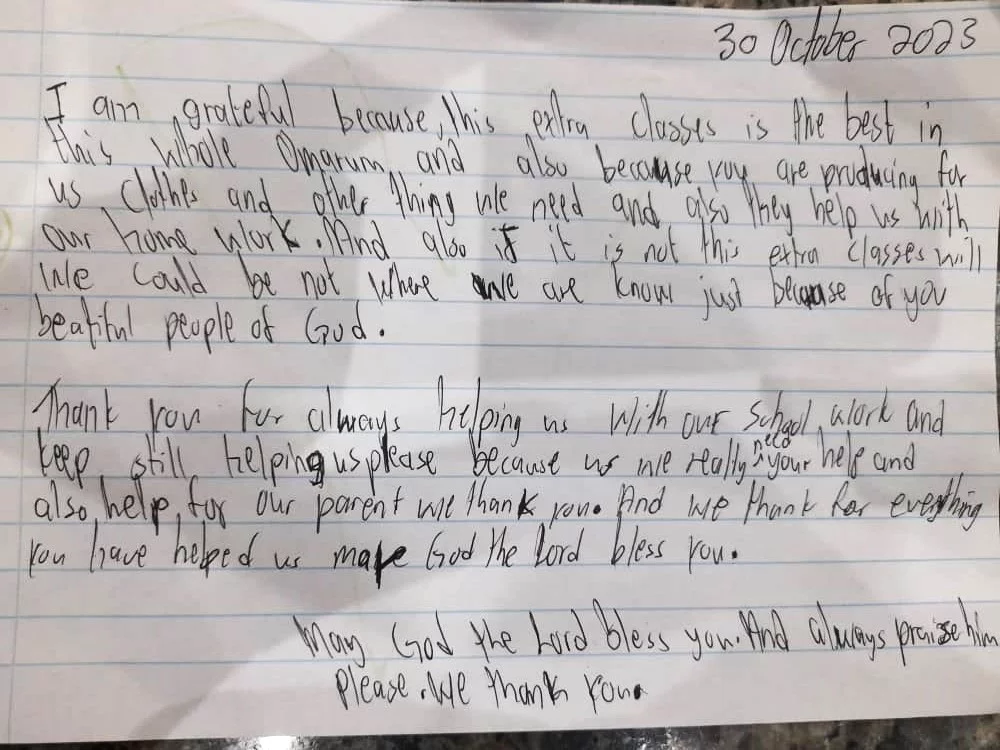 30 October 2023
I am grateful because, this extra classes is the best in
this whole Omarum, and also because you are producing for
us, clothes and other thing we need and also they help us with
our home work. And also if it is not this extra classes will
we could be not where we are know just because of you
beatiful people of God.
Thank you for always helping us with our school work and
keep still helping us please because us we really need your help and
also, help, for our parent we thank you. And we thank for everything
you have helped us make God the Lord bless you.
May God the Lord bless you. And always praize him
please. We thank you.